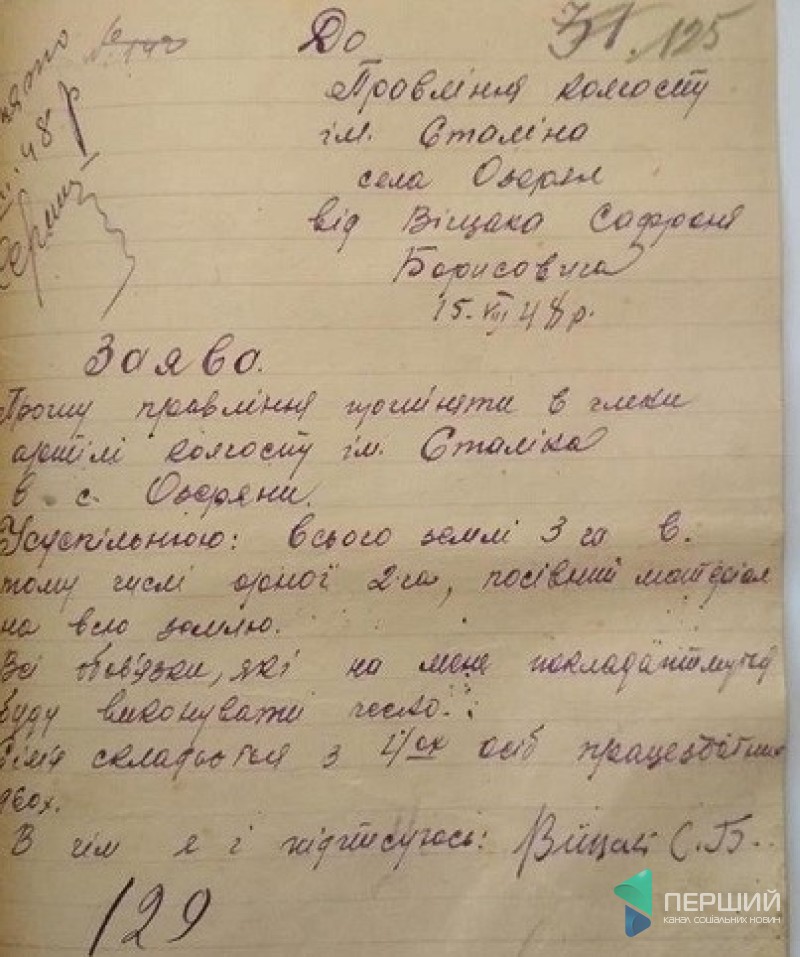 № 142
48 р
125
До
Правління колгоспу
ім. Сталіна
села Озерян
від Віщака Сафрона
Борисовича
15.VIII 48 р.
Заява.
Прошу правління прийняти в члени
артілі колгоспу ім. Сталіна
в с. Озеряни.
Усуспільнюю: всього землі 3 га в.
тому числі орної 2 га, посівний матеріал
на всю землю.
Всі обов'язки, які на мене покладатимуться
буду виконувати чесно.
Сім'я складається з 4ох осіб працездатних
двох.
В чім я і підписуюсь: Віщак С.Б.
129
ПЕРШИЙ
КАНАЛ СОЦІАЛЬНИХ НОВИН